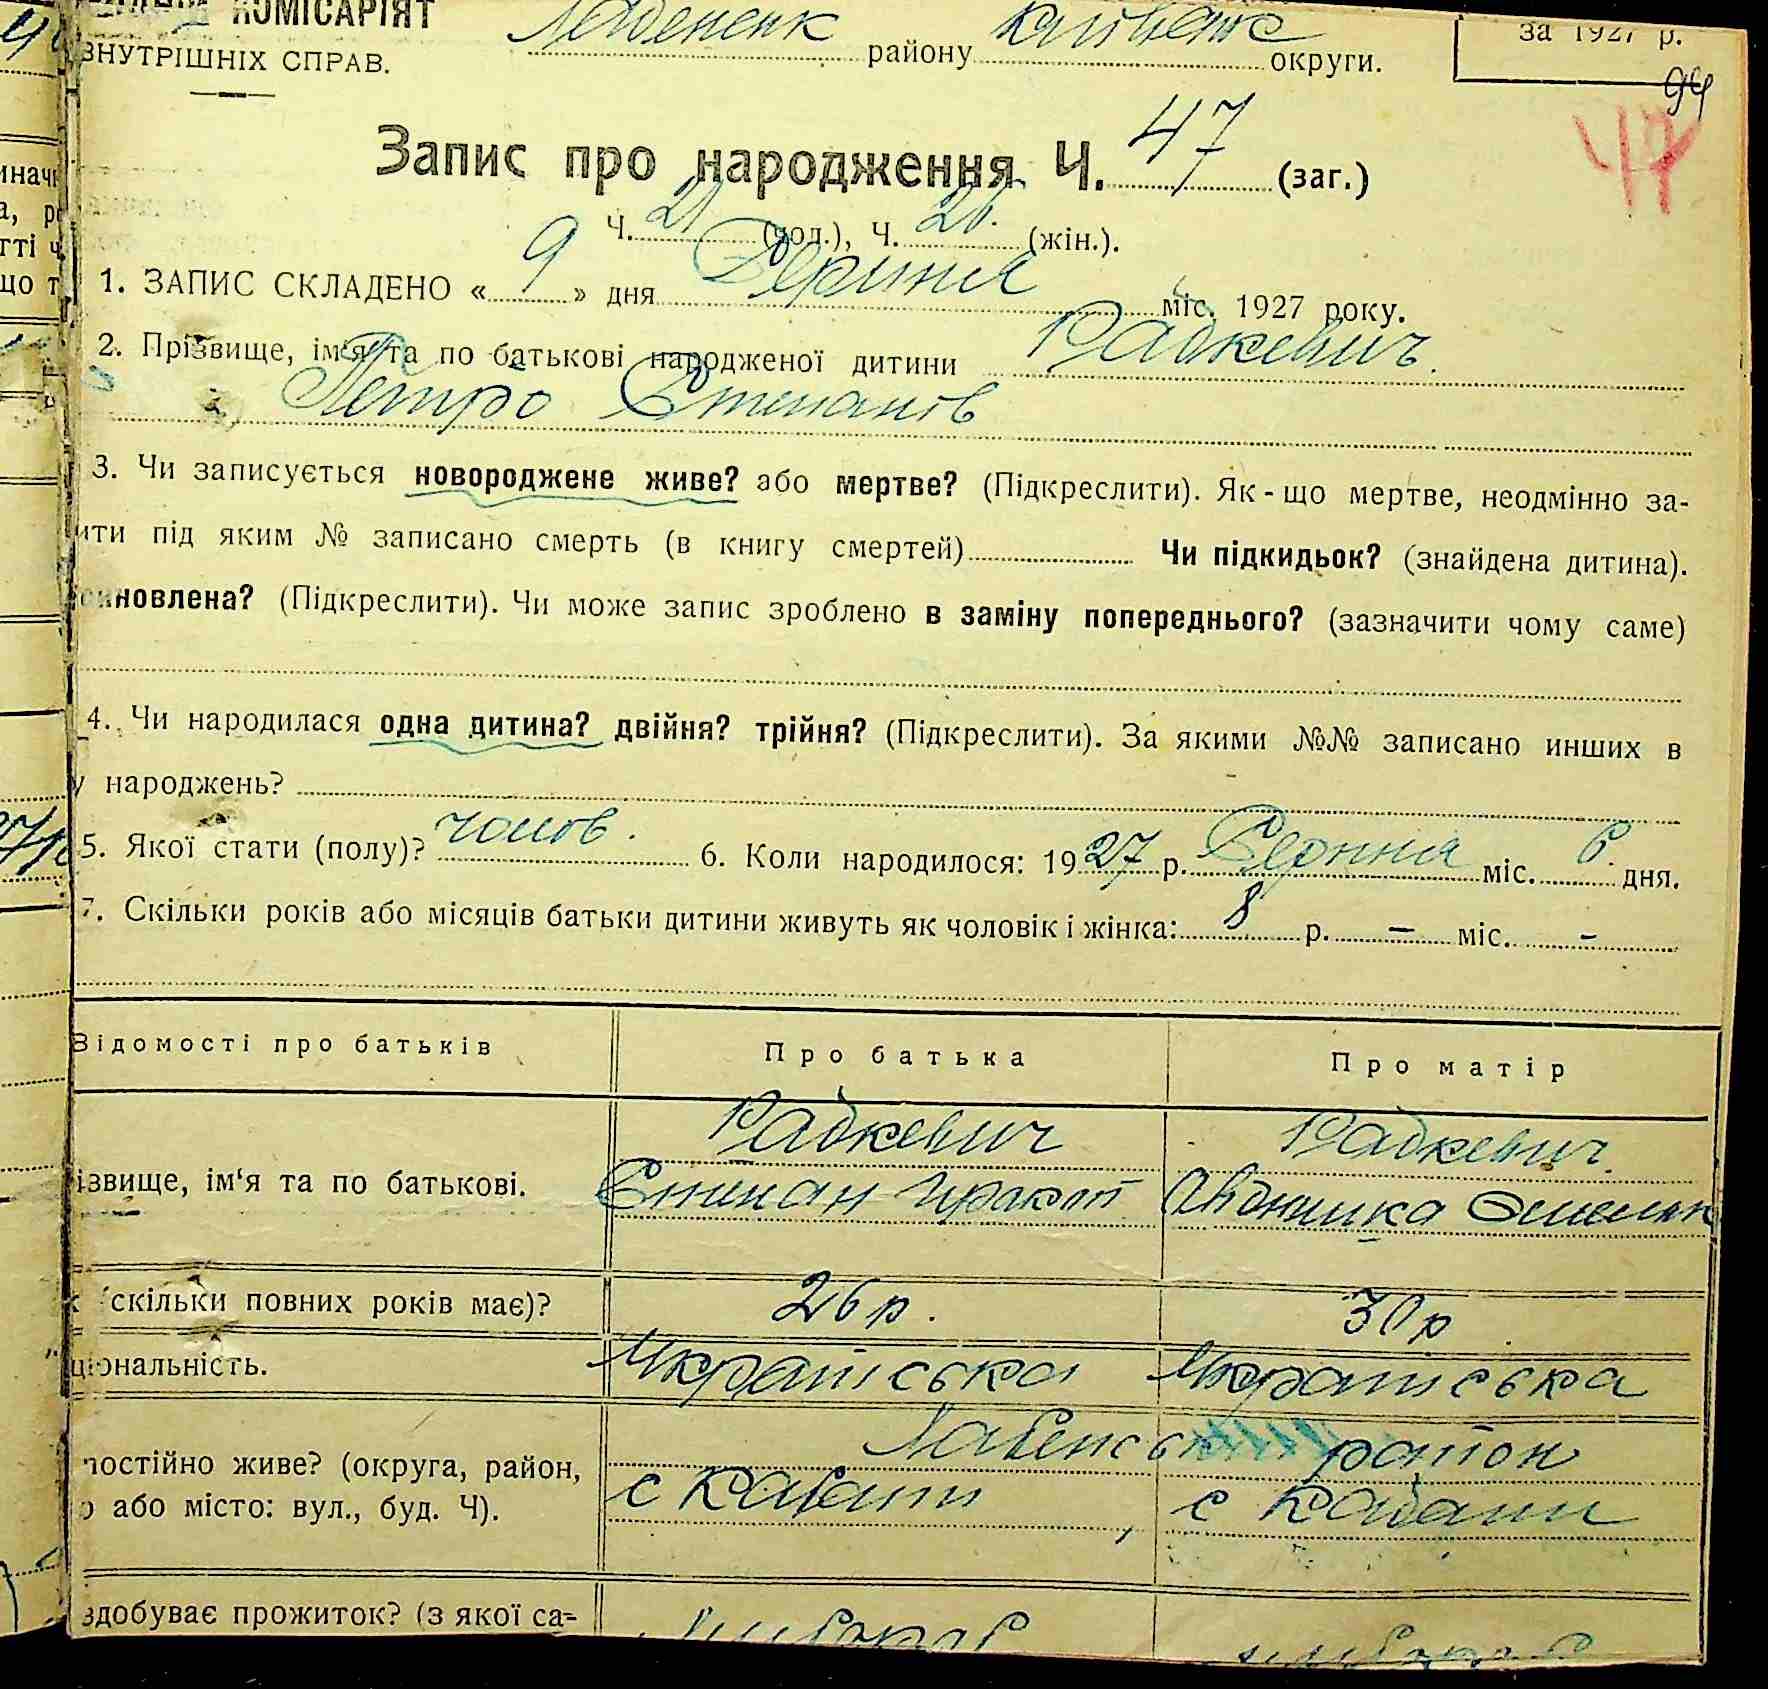 КОМІСАРІЯТ
ВНУТРІШНІХ СПРАВ.
району округи.
за 1927 р.
94
Запис про народження Ч. 47 (заг.)
47
Ч. 21 (чол.), Ч. 26. (жін.).
1. ЗАПИС СКЛАДЕНО « 9 » дня Серпня міс. 1927 року.
2. Прізвище, ім'я та по батькові народженої дитини Радкевич.
Петро Степанов
3. Чи записується новороджене живе? або мертве? (Підкреслити). Як-що мертве, неодмінно за-
ити під яким № записано смерть (в книгу смертей) Чи підкидьок? (знайдена дитина).
новлена? (Підкреслити). Чи може запис зроблено в заміну попереднього? (зазначити чому саме)
4. Чи народилася одна дитина? двійня? трійня? (Підкреслити). За якими №№ записано инших в
у народжень?
5. Якої стати (полу)? чолов. 6. Коли народилося: 1927 р. Серпня міс. 6 дня.
7. Скільки років або місяців батьки дитини живуть як чоловік і жінка: 8 р. — міс. -
Відомості про батьків Про батька Про матір
Радкевич Радкевич
ізвище, ім'я та по батькові. Степан
(скільки повних років має)? 26 р. 30 р
ціональність. Українська Українська
Хабенськ район
постійно живе? (округа, район, с Кабани с Кабани
о або місто: вул., буд. Ч).
здобуває прожиток? (з якої са-